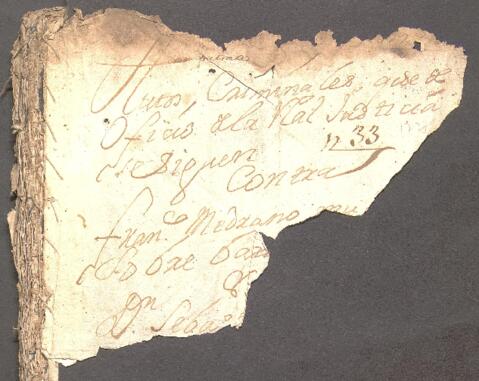 Autos Criminales que de
Oficio de la Rl Justicia
se siguen
1233
Contra
Franco Medrano mu
sobre
Dn Seba